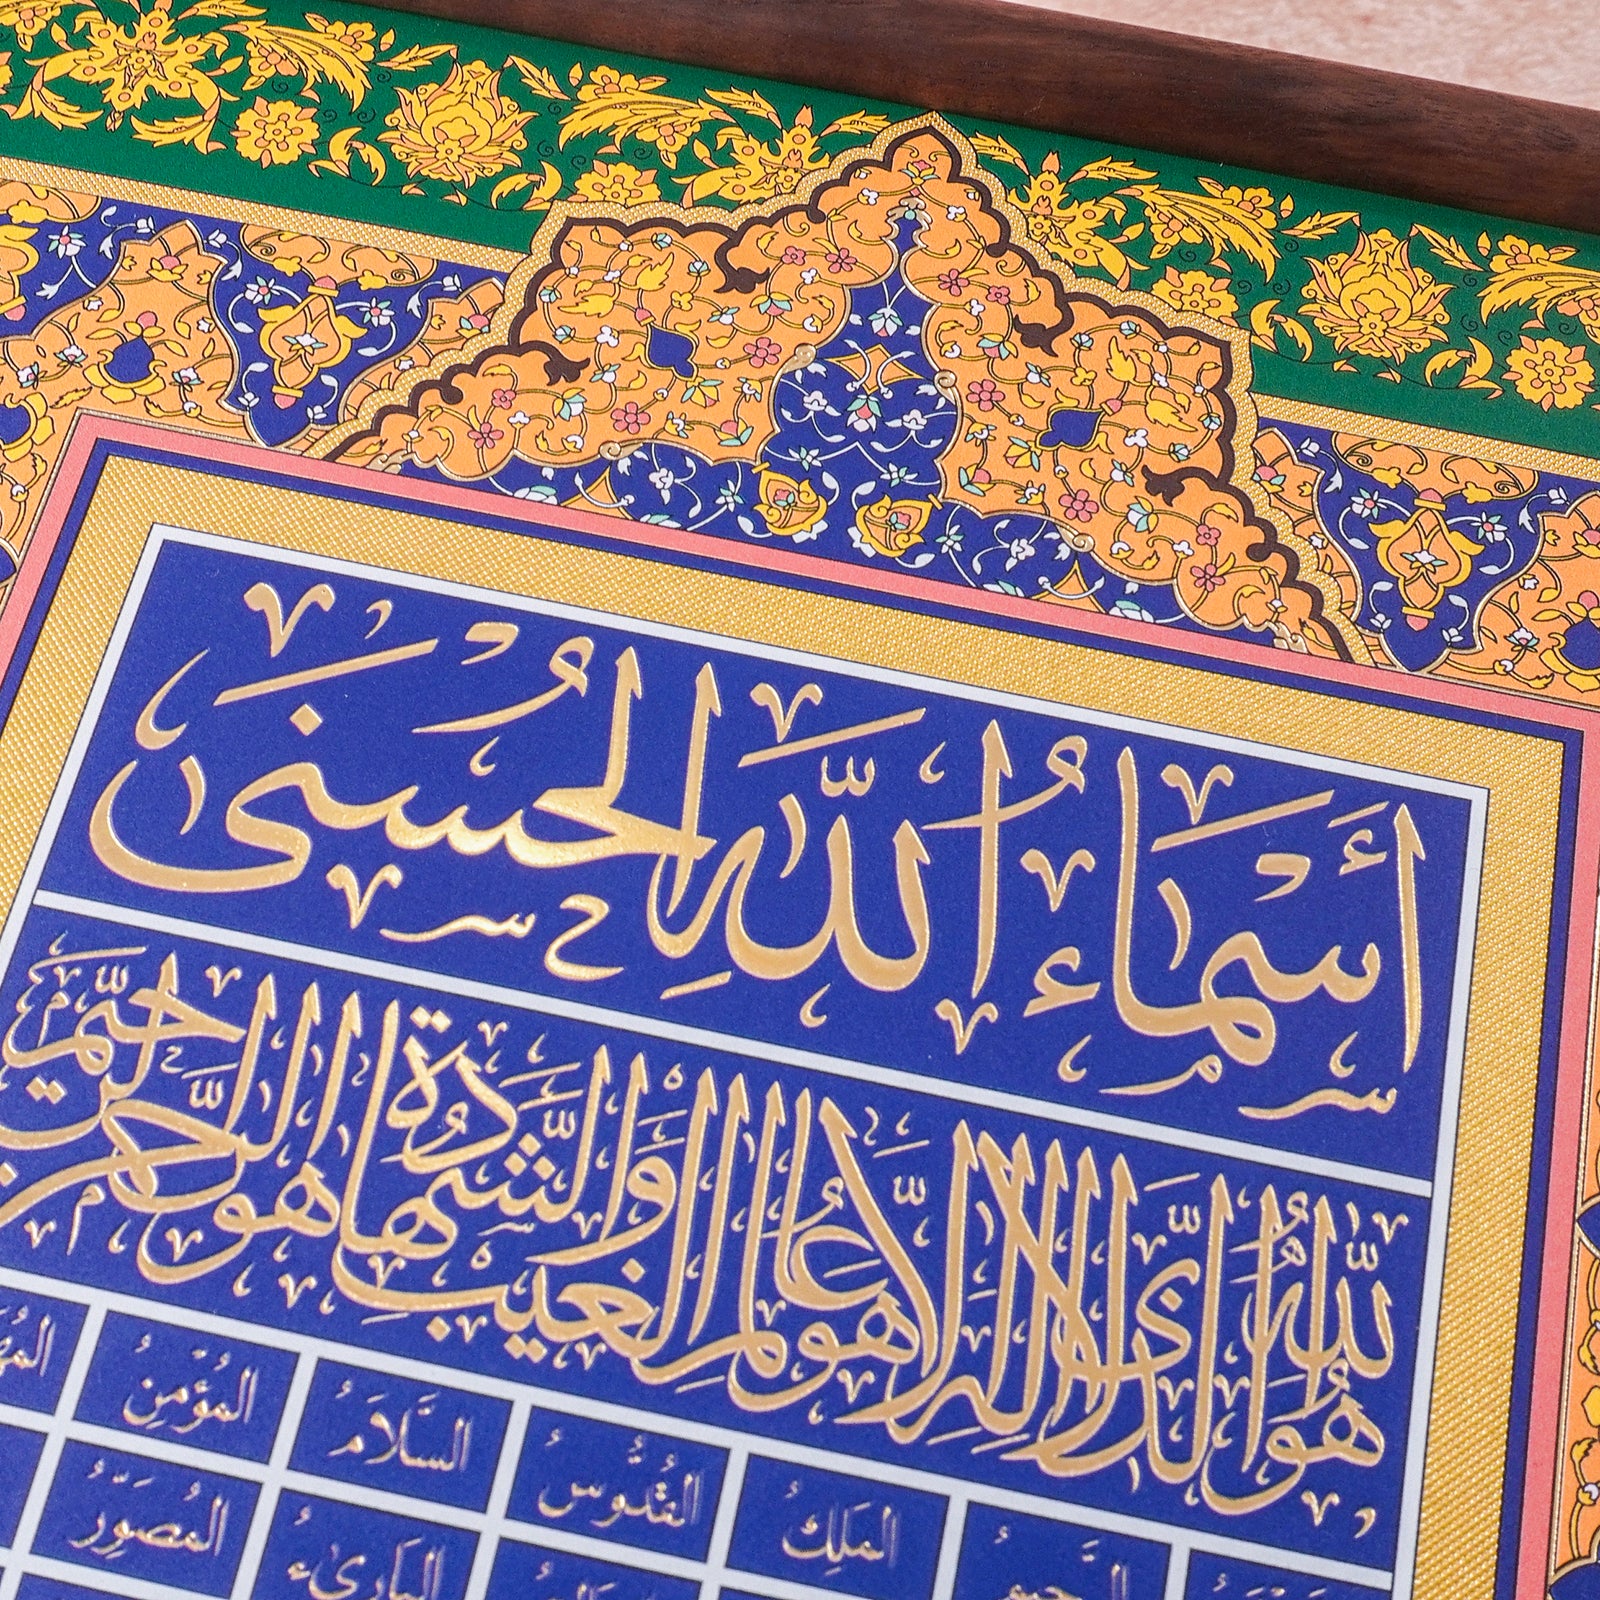 أَسْمَاءُ اللَّهِ الْحُسْنَى
هُوَ اللَّهُ الَّذِي لَا إِلَهَ إِلَّا هُوَ عَالِمُ الْغَيْبِ وَالشَّهَادَةِ هُوَ الرَّحْمَنُ الرَّحِيمُ
الرَّحِيمُ المَلِكُ القُدُّوسُ السَّلَامُ المُؤْمِنُ
البَارِىءُ المُصَوِّرُ